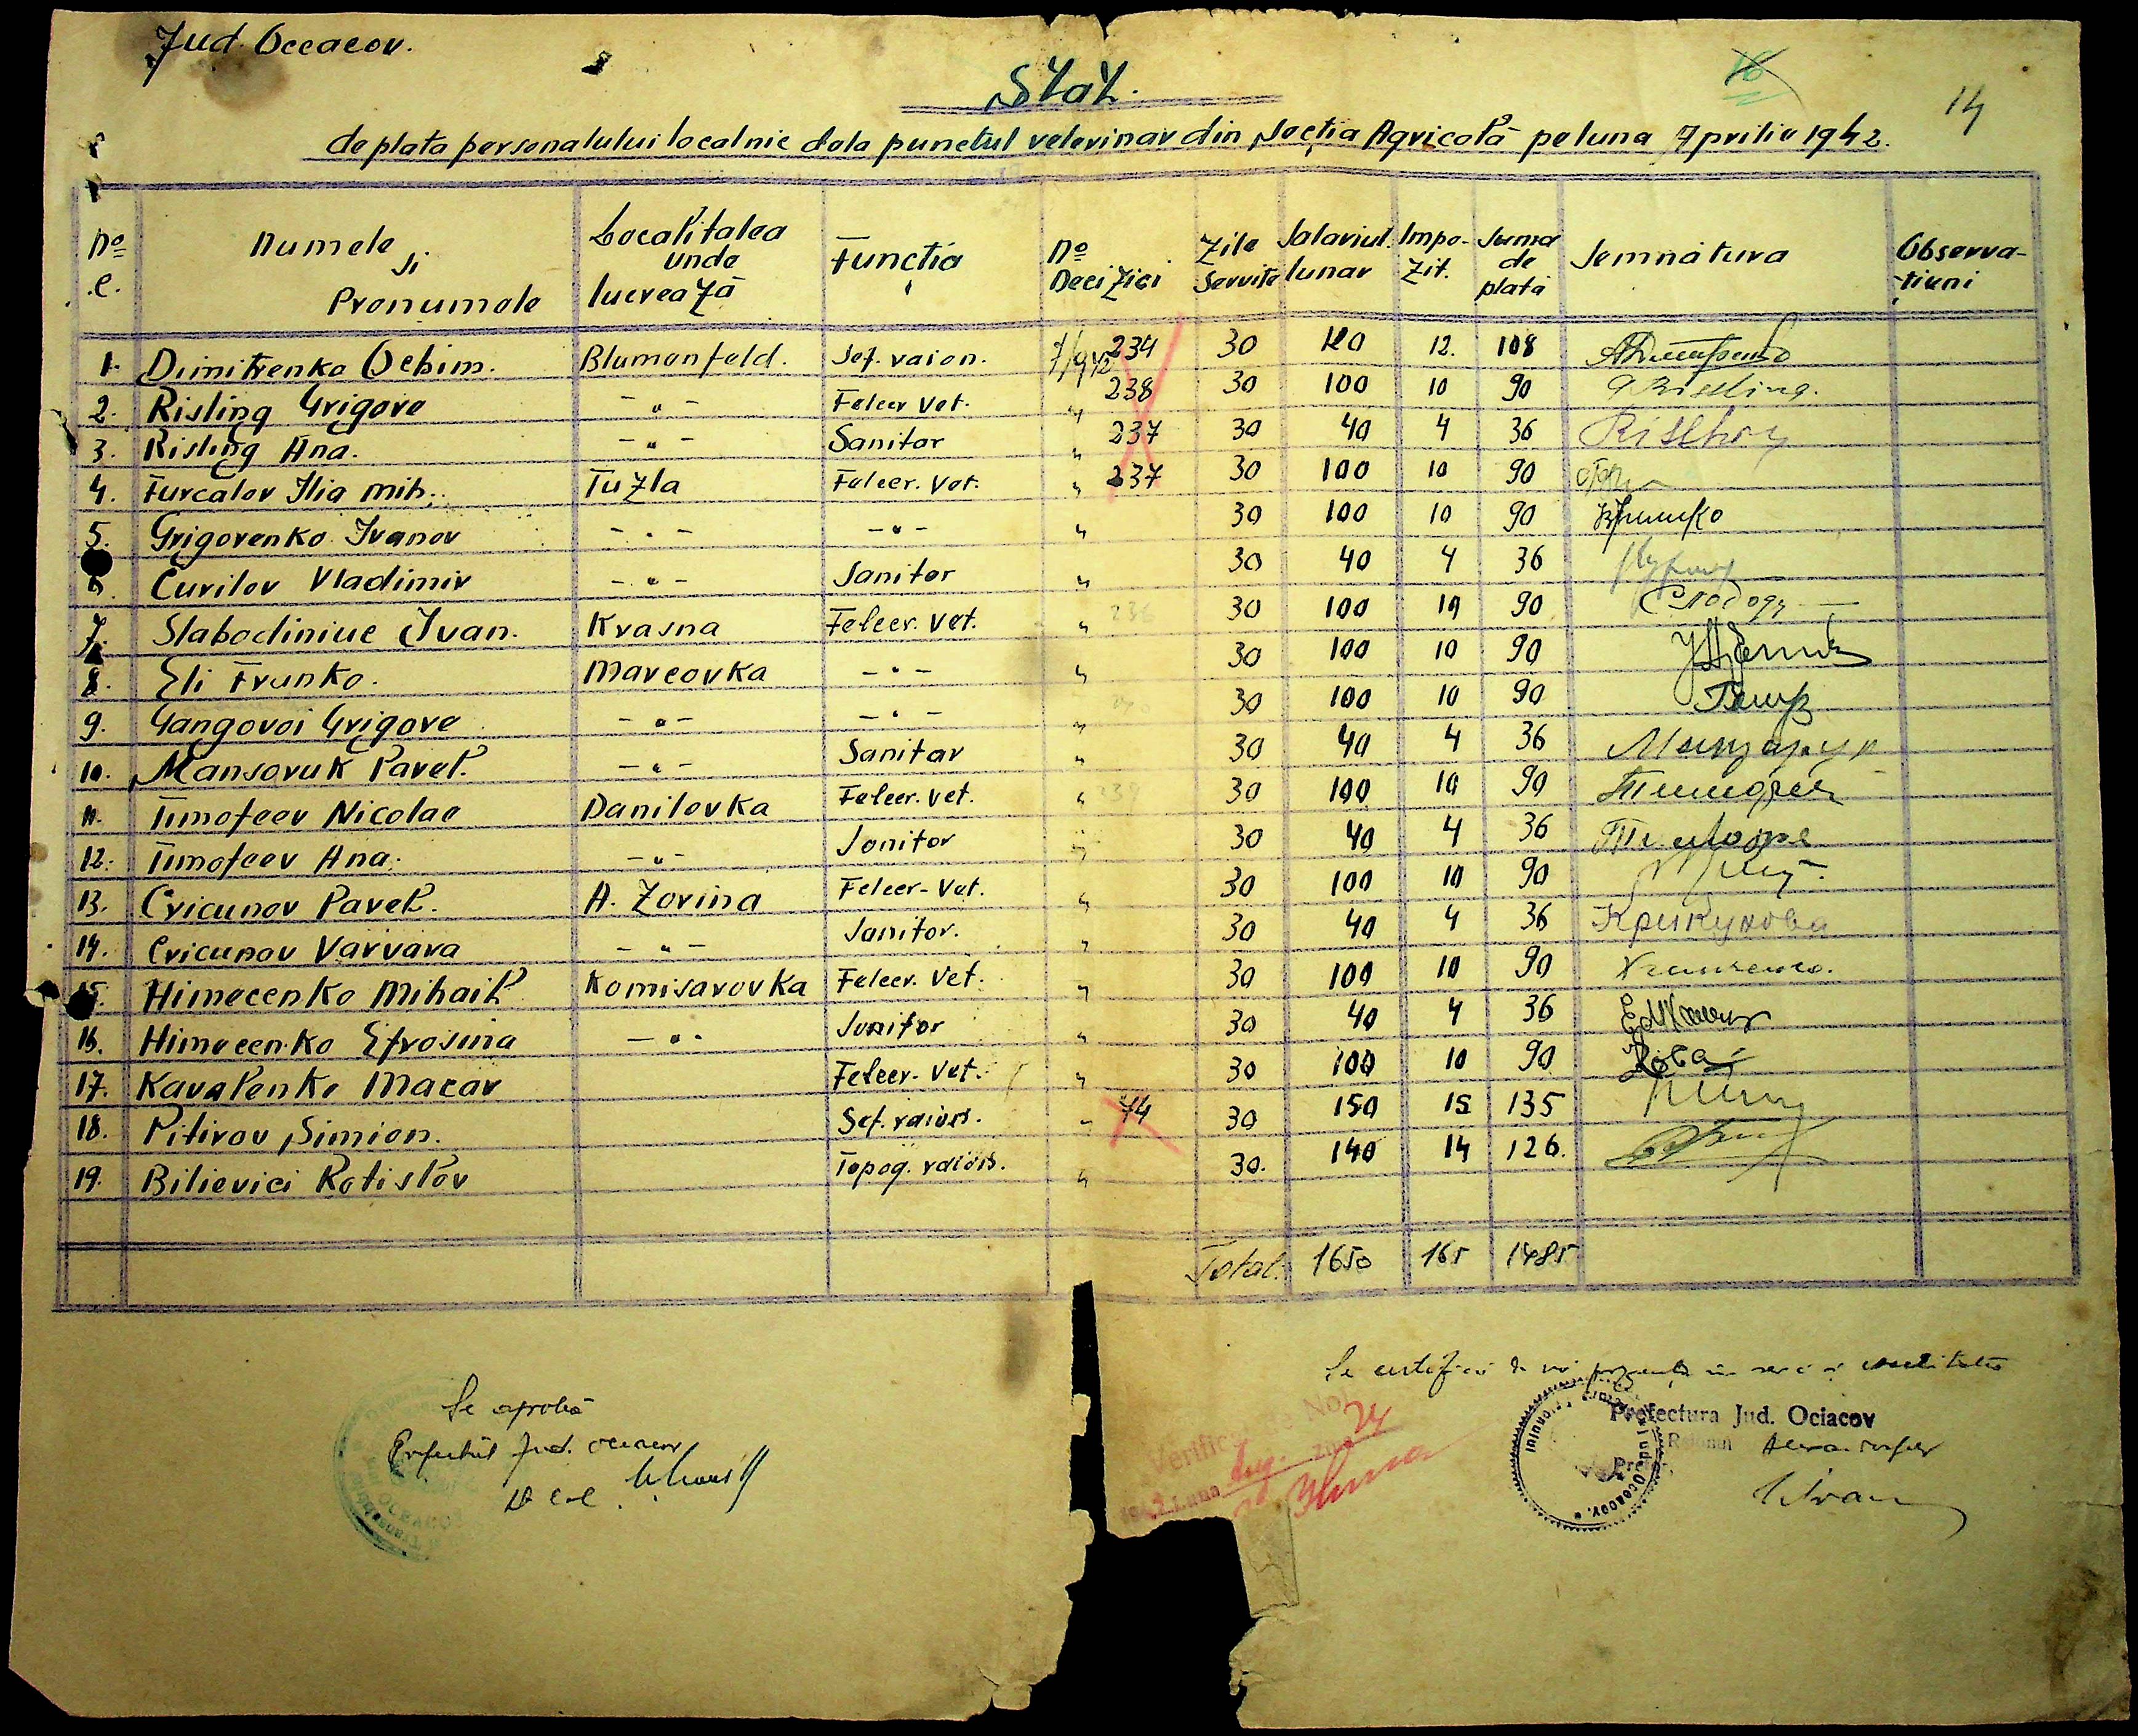 Jud. Oceacov.
16
14
Stat.
de plata personalului localnic dela punctul veterinar din Secția Agricolă pe luna Aprilie 1942.
No c. Numele și Pronumele Localitatea unde lucrează Funcția No Deciziei Zile Servite Salariul lunar Impozit. Suma de plată Semnătura Observațiuni
1. Dimitrenko Ochim. Blumenfeld. Șef. raion. 7/942 234 30 120 12. 108
2. Risling Grigore -"- Felcer Vet. " 238 30 100 10 90 Rissling.
3. Risling Ana. -"- Sanitar " 237 30 40 4 36
4. Furcalov Ilia mih. Tuzla Felcer. Vet. " 237 30 100 10 90
5. Grigorenko Ivanov -"- -"- " 30 100 10 90
6. Curilov Vladimir -"- Sanitor " 30 40 4 36
7. Slabodiniuc Ivan. Krasna Felcer. Vet. " 236 30 100 10 90
8. Eli Frunko. Marcovka -"- " 30 100 10 90
9. Gangovoi Grigore -"- -"- " 30 100 10 90
10. Mansoruk Pavel. -"- Sanitar " 30 40 4 36
11. Timofeev Nicolae Danilovka Felcer. Vet. " 239 30 100 10 90
12. Timofeev Ana. -"- Sanitor " 30 40 4 36
13. Cricunov Pavel. A. Zorina Felcer-Vet. " 30 100 10 90
14. Cricunov Varvara -"- Sanitor. " 30 40 4 36 Крикунова
15. Himecenko Mihail Komisarovka Felcer. Vet. " 30 100 10 90
16. Himecenko Efrosina -"- Sanitor " 30 40 4 36
17. Kavalenko Macar Felcer. Vet. " 30 100 10 90
18. Pitirov Simion. Șef. raion. " 74 30 150 15 135
19. Bilievici Rotislov Topog. raion. " 30. 140 14 126.
Total. 1650 165 1485
Se aprobă
Prefectul Jud. Oceacov
Prefectura Jud. Ociacov
Raionul
Pretor,
Verificat
No.
24
Luna Aug.